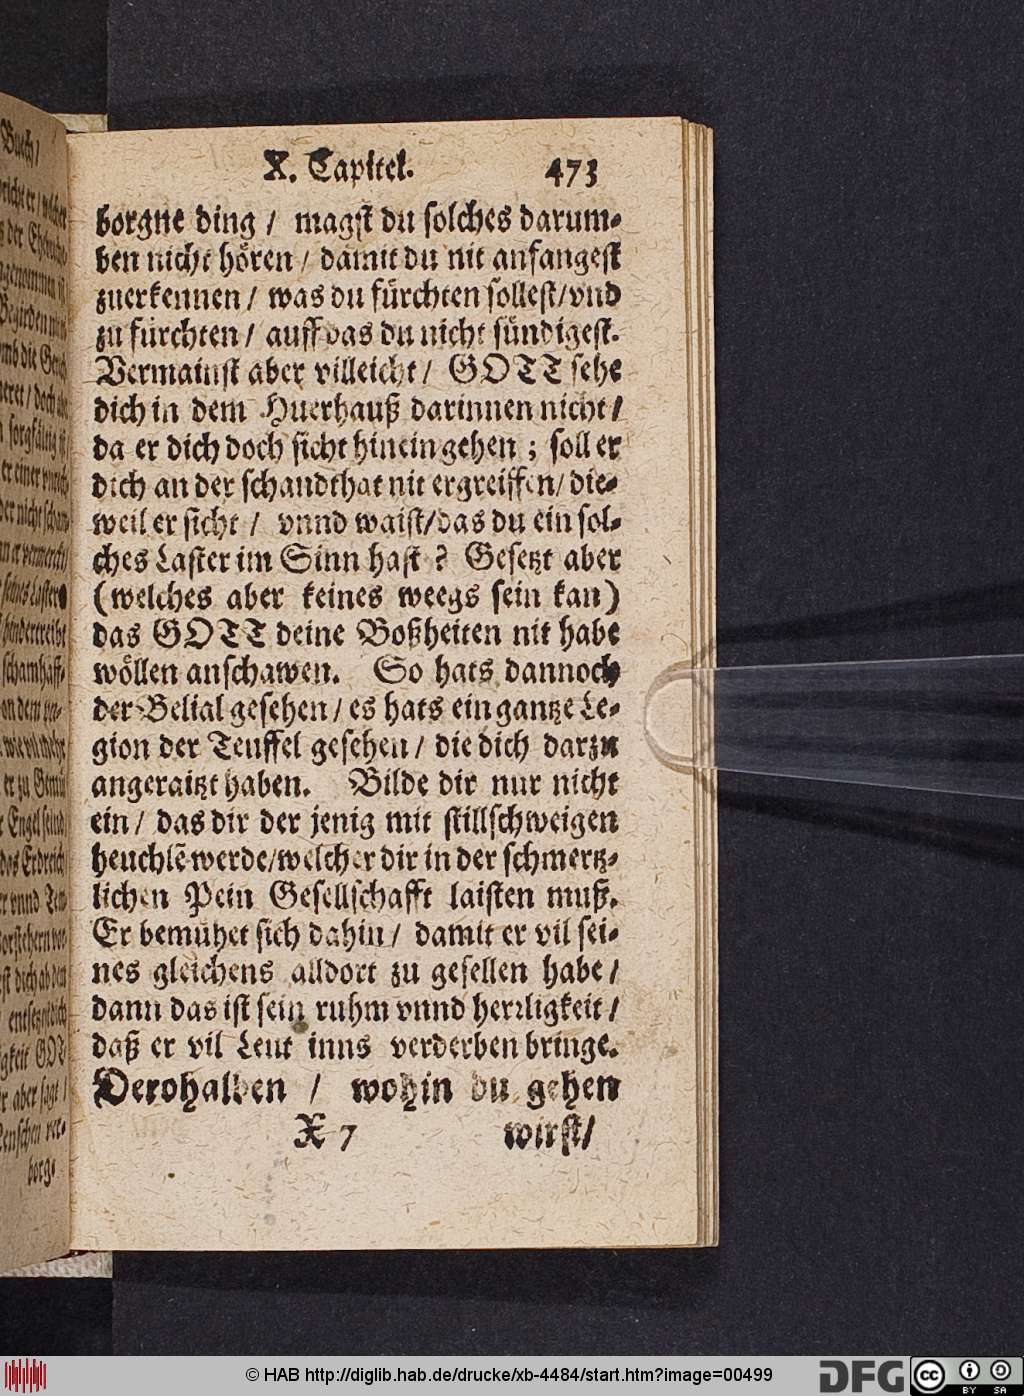 X. Capitel. 473
borgne ding / magst du solches darum-
ben nicht hören / damit du nit anfangest
zuerkennen / was du fürchten sollest / vnd
zu fürchten / auff das du nicht sündigest.
Vermainst aber villeicht / GOTT sehe
dich in dem Huerhauß darinnen nicht /
da er dich doch sicht hinein gehen ; soll er
dich an der schandthat nit ergreiffen / die-
weil er sicht / vnnd waist / das du ein sol-
ches Laster im Sinn hast ? Gesetzt aber
(welches aber keines weegs sein kan)
das GOTT deine Boßheiten nit habe
wöllen anschawen. So hats dannoch
der Belial gesehen / es hats ein gantze Le-
gion der Teuffel gesehen / die dich darzu
angeraitzt haben. Bilde dir nur nicht
ein / das dir der jenig mit stillschweigen
heuchlē werde / welcher dir in der schmertz-
lichen Pein Gesellschafft laisten muß.
Er bemühet sich dahin / damit er vil sei-
nes gleichens alldort zu gesellen habe /
dann das ist sein ruhm vnnd herrligkeit /
daß er vil Leut inns verderben bringe.
Derohalben / wohin du gehen
X 7 wirst /
Buch /
borg-
© HAB http://diglib.hab.de/drucke/xb-4484/start.htm?image=00499
DFG
cc
BY SA